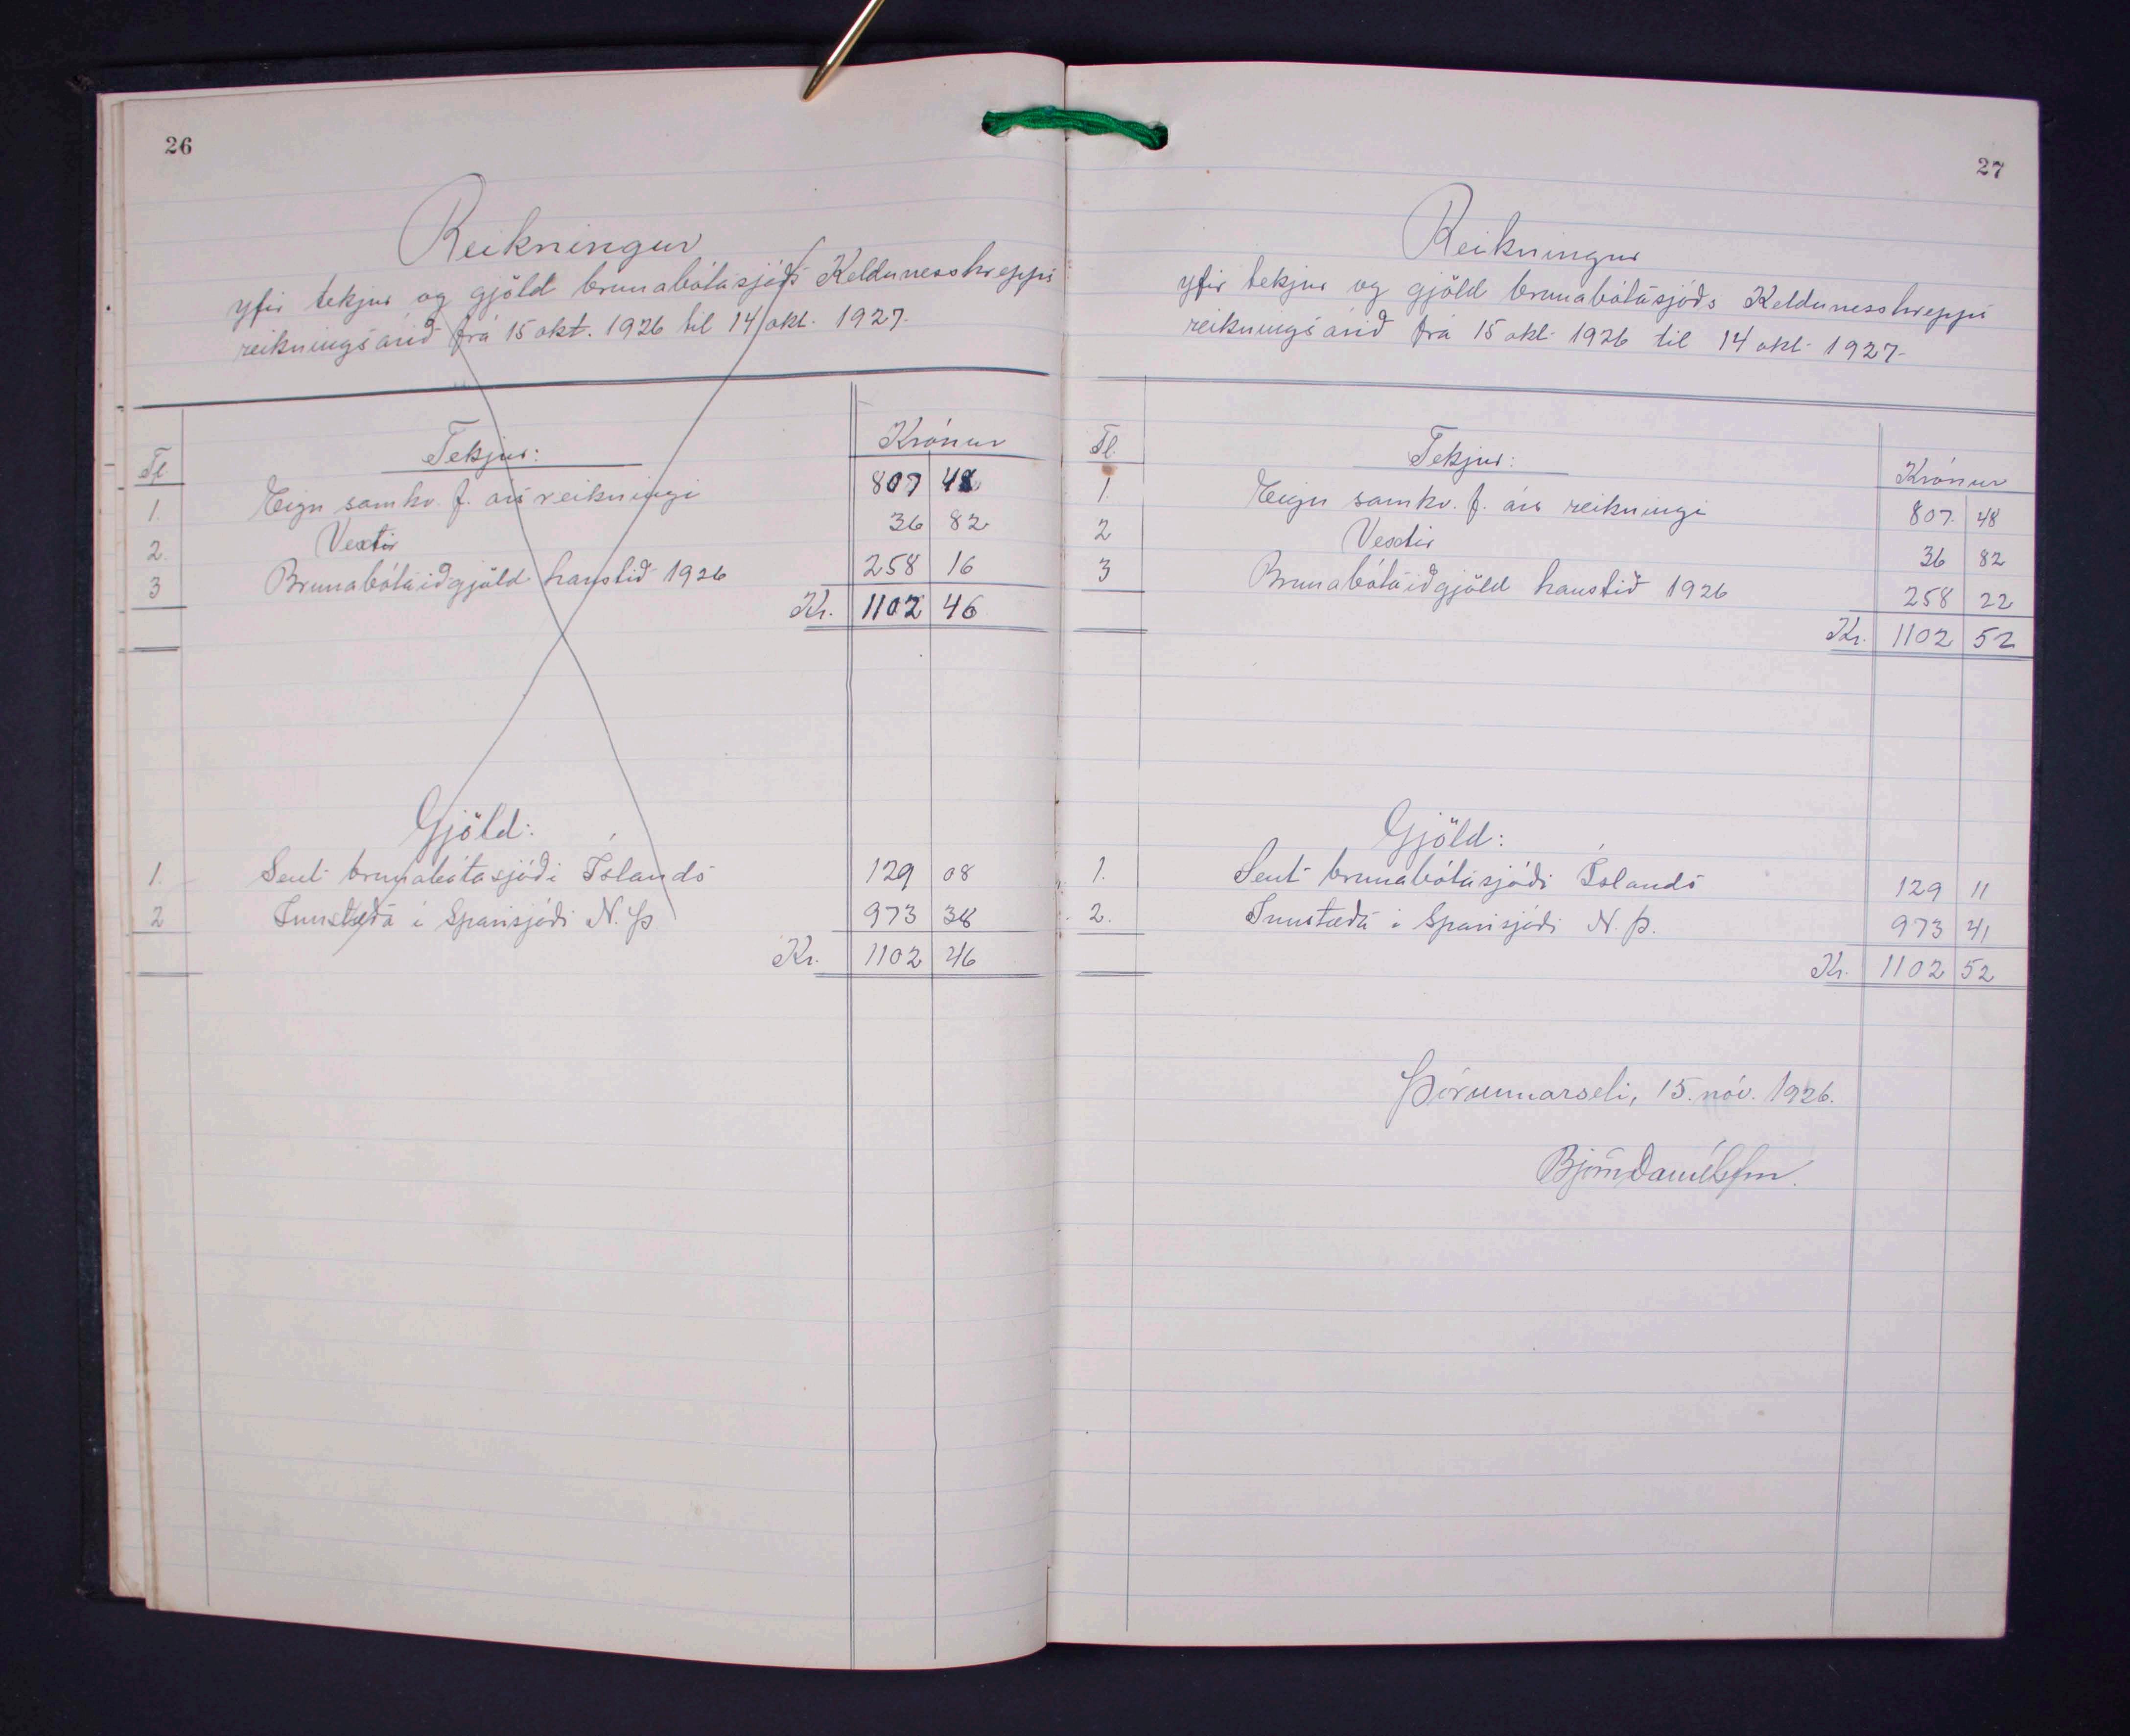 26
Reikningur
yfir tekjur og gjöld brunabótasjóðs Keldunesshreppi
reikningsárið frá 15 okt. 1926 til 14 okt. 1927.
Tl Tekjur: Krónur
1. Eign samkv. f. árs reikningi 807 48
2. Vextir 36 82
3 Brunabótaiðgjöld haustið 1926 258 16
Kr. 1102 46
Gjöld:
1. Sent brunabótasjóði Íslands 129 08
2 Innstæða í Sparisjóði N. Þ 973 38
Kr. 1102 46
27
Reikningur
yfir tekjur og gjöld brunabótasjóðs Keldunesshreppi
reikningsárið frá 15 okt. 1926 til 14 okt. 1927.
Tl. Tekjur: Krónur
1. Eign samkv. f. árs reikningi 807. 48
2 Vextir 36 82
3 Brunabótaiðgjöld haustið 1926 258 22
Kr. 1102 52
Gjöld:
1. Sent brunabótasjóði Íslands 129 11
2. Innstæða í Sparisjóði N. Þ. 973 41
Kr. 1102 52
Þórunnarseli, 15. nóv. 1926.
Björn Daníelsson.